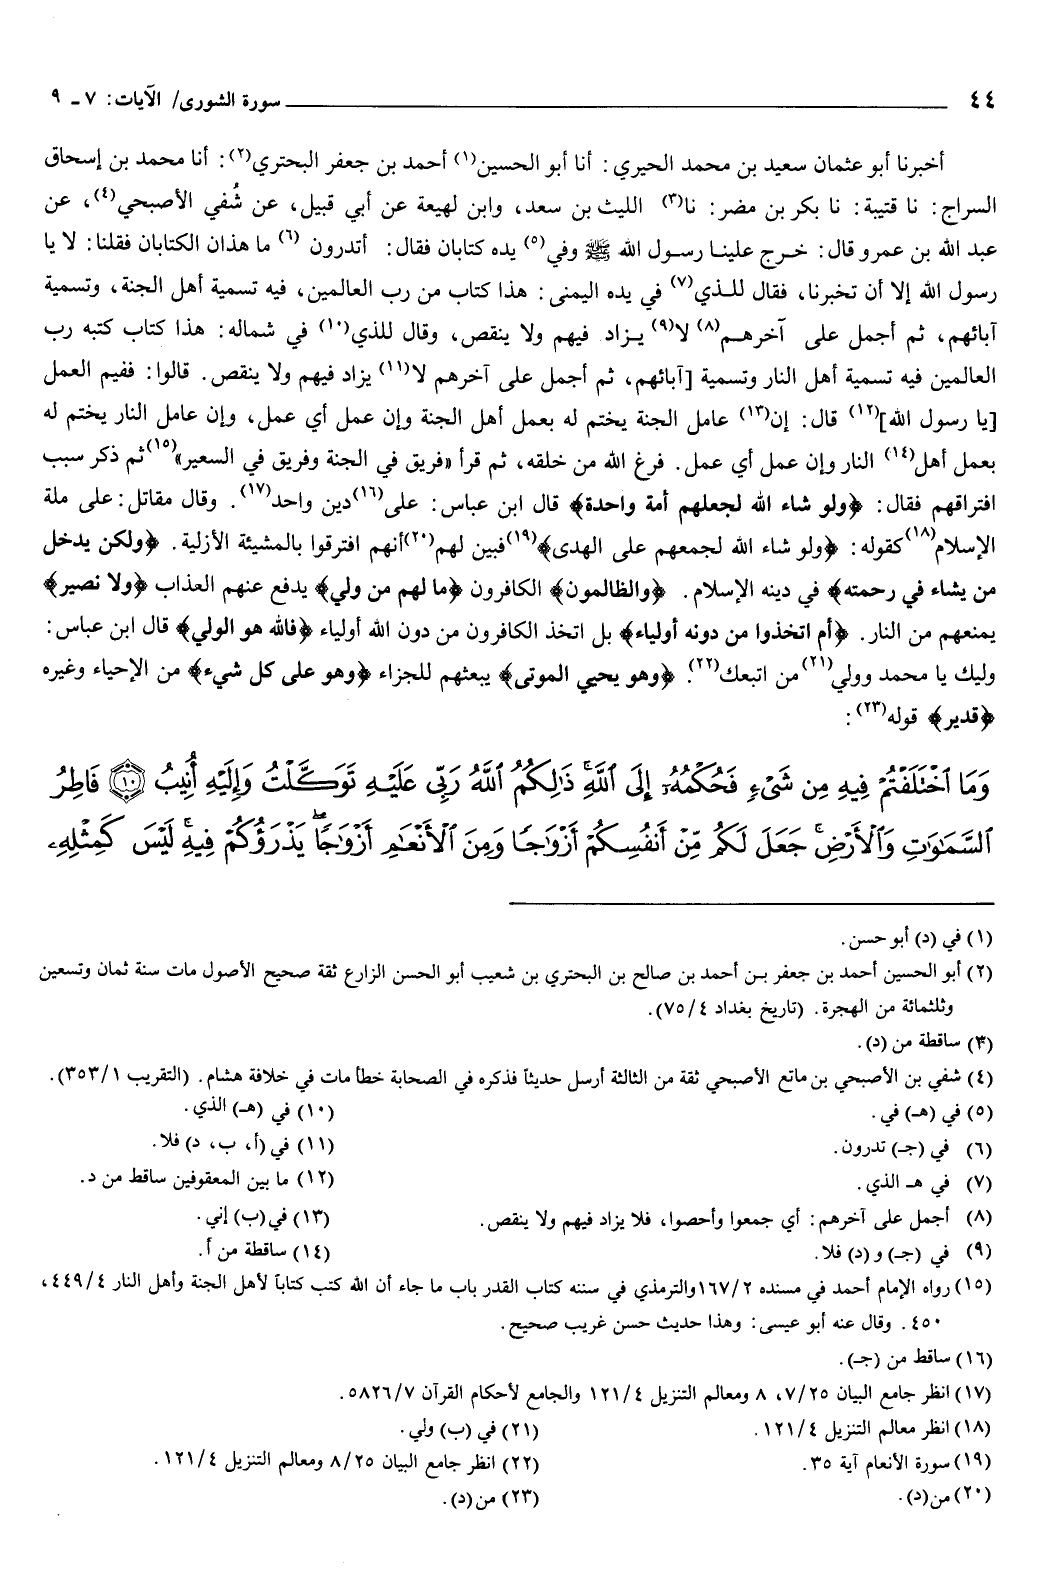 ٤٤ سورة الشورى/ الآيات: ٧ ـ ٩
أخبرنا أبو عثمان سعيد بن محمد الحيري: أنا أبو الحسين(١) أحمد بن جعفر البحتري(٢): أنا محمد بن إسحاق
السراج: نا قتيبة: نا بكر بن مضر: نا(٣) الليث بن سعد، وابن لهيعة عن أبي قبيل، عن شُفي الأصبحي(٤)، عن
عبد الله بن عمرو قال: خرج علينا رسول الله ﷺ وفي(٥) يده كتابان فقال: أتدرون (٦) ما هذان الكتابان فقلنا: لا يا
رسول الله إلا أن تخبرنا، فقال للذي(٧) في يده اليمنى: هذا كتاب من رب العالمين، فيه تسمية أهل الجنة، وتسمية
آبائهم، ثم أجمل على آخرهم(٨) لا(٩) يزاد فيهم ولا ينقص، وقال للذي(١٠) في شماله: هذا كتاب كتبه رب
العالمين فيه تسمية أهل النار وتسمية [آبائهم، ثم أجمل على آخرهم لا(١١) يزاد فيهم ولا ينقص. قالوا: ففيم العمل
[يا رسول الله](١٢) قال: إن(١٣) عامل الجنة يختم له بعمل أهل الجنة وإن عمل أي عمل، وإن عامل النار يختم له
بعمل أهل(١٤) النار وإن عمل أي عمل. فرغ الله من خلقه، ثم قرأ «فريق في الجنة وفريق في السعير»(١٥) ثم ذكر سبب
افتراقهم فقال: ﴿ولو شاء الله لجعلهم أمة واحدة﴾ قال ابن عباس: على(١٦) دين واحد(١٧). وقال مقاتل: على ملة
الإسلام(١٨) كقوله: ﴿ولو شاء الله لجمعهم على الهدى﴾(١٩) فبين لهم(٢٠) أنهم افترقوا بالمشيئة الأزلية. ﴿ولكن يدخل
من يشاء في رحمته﴾ في دينه الإسلام. ﴿والظالمون﴾ الكافرون ﴿ما لهم من ولي﴾ يدفع عنهم العذاب ﴿ولا نصير﴾
يمنعهم من النار. ﴿أم اتخذوا من دونه أولياء﴾ بل اتخذ الكافرون من دون الله أولياء ﴿فالله هو الولي﴾ قال ابن عباس:
وليك يا محمد وولي(٢١) من اتبعك(٢٢). ﴿وهو يحيي الموتى﴾ يبعثهم للجزاء ﴿وهو على كل شيء﴾ من الإحياء وغيره
﴿قدير﴾ قوله(٢٣):
وَمَا اَخْتَلَفْتُمْ فِيهِ مِن شَىْءٍ فَحُكْمُهُۥٓ إِلَى ٱللَّهِ ۚ ذَٰلِكُمُ ٱللَّهُ رَبِّى عَلَيْهِ تَوَكَّلْتُ وَإِلَيْهِ أُنِيبُ ۝١٠ فَاطِرُ
ٱلسَّمَٰوَٰتِ وَٱلْأَرْضِ ۚ جَعَلَ لَكُم مِّنْ أَنفُسِكُمْ أَزْوَٰجًا وَمِنَ ٱلْأَنْعَٰمِ أَزْوَٰجًا ۖ يَذْرَؤُكُمْ فِيهِ ۚ لَيْسَ كَمِثْلِهِۦ
(١) في (د) أبو حسن.
(٢) أبو الحسين أحمد بن جعفر بن أحمد بن صالح بن البحتري بن شعيب أبو الحسن الزارع ثقة صحيح الأصول مات سنة ثمان وتسعين
وثلثمائة من الهجرة. (تاريخ بغداد ٧٥/٤).
(٣) ساقطة من (د).
(٤) شفي بن الأصبحي بن ماتع الأصبحي ثقة من الثالثة أرسل حديثاً فذكره في الصحابة خطأ مات في خلافة هشام. (التقريب ٣٥٣/١).
(٥) في (هـ) في. (١٠) في (هـ) الذي.
(٦) في (جـ) تدرون. (١١) في (أ، ب، د) فلا.
(٧) في هـ الذي. (١٢) ما بين المعقوفين ساقط من د.
(٨) أجمل على آخرهم: أي جمعوا وأحصوا، فلا يزاد فيهم ولا ينقص. (١٣) في (ب) إني.
(٩) في (جـ) و (د) فلا. (١٤) ساقطة من أ.
(١٥) رواه الإمام أحمد في مسنده ١٦٧/٢ والترمذي في سننه كتاب القدر باب ما جاء أن الله كتب كتاباً لأهل الجنة وأهل النار ٤٤٩/٤،
٤٥٠. وقال عنه أبو عيسى: وهذا حديث حسن غريب صحيح.
(١٦) ساقط من (جـ).
(١٧) انظر جامع البيان ٧/٢٥، ٨ ومعالم التنزيل ١٢١/٤ والجامع لأحكام القرآن ٥٨٢٦/٧.
(١٨) انظر معالم التنزيل ١٢١/٤. (٢١) في (ب) ولي.
(١٩) سورة الأنعام آية ٣٥. (٢٢) انظر جامع البيان ٨/٢٥ ومعالم التنزيل ١٢١/٤.
(٢٠) من (د). (٢٣) من (د).